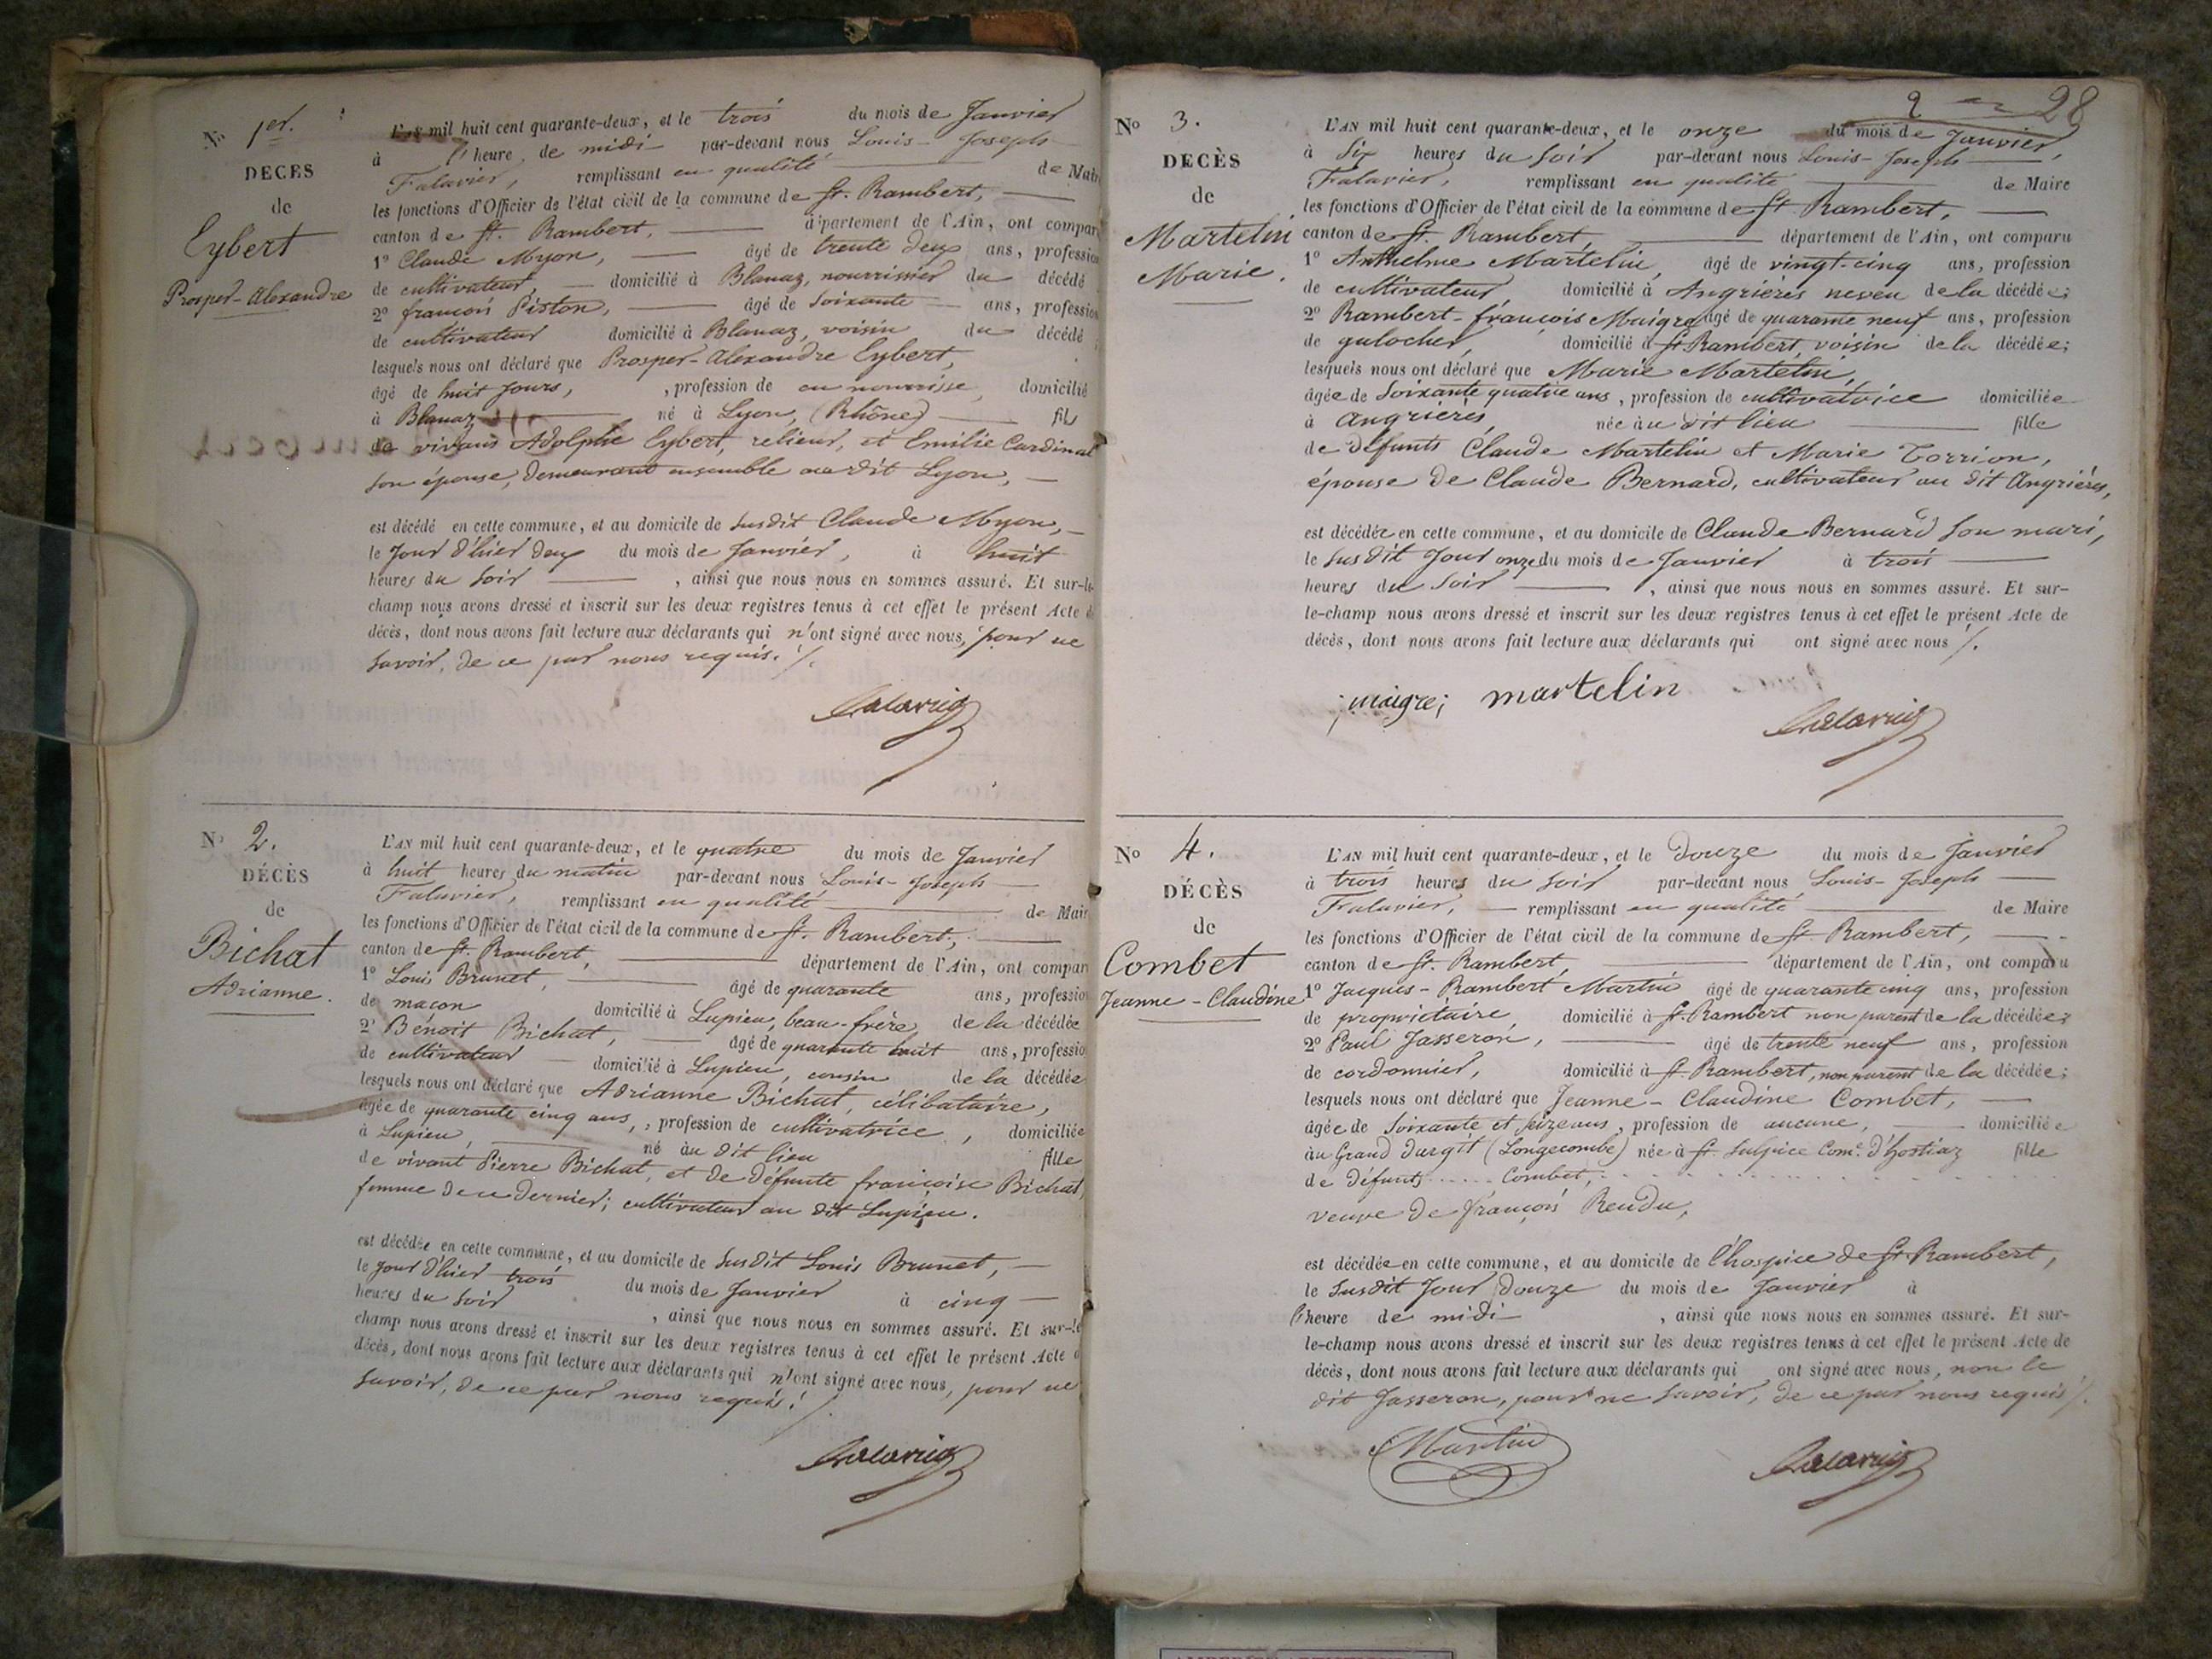 N° 1er.
DECES
de
Eybert
Prosper-Alexandre
L'AN mil huit cent quarante-deux, et le trois du mois de Janvier
à l'heure de midi par-devant nous Louis-Joseph
Falavier, remplissant en qualité de Mair
les fonctions d'Officier de l'état civil de la commune de St. Rambert,
canton de St. Rambert, département de l'Ain, ont compar
1° Claude Myon, âgé de trente deux ans, profession
de cultivateur, domicilié à Blanaz, nourrissier du décédé
2° françois Piston, âgé de soixante ans, profession
de cultivateur domicilié à Blanaz, voisin du décédé;
lesquels nous ont déclaré que Prosper-Alexandre Eybert,
âgé de huit jours, , profession de en nourrisse, domicilié
à Blanaz né à Lyon, (Rhône) fils
de vivans Adolphe Eybert, relieur, et Emilie Cardinal
son épouse, demeurant ensemble au dit Lyon,
est décédé en cette commune, et au domicile de susdit Claude Myon,
le jour d'hier deux du mois de Janvier, à huit
heures du soir , ainsi que nous nous en sommes assuré. Et sur-le-
champ nous avons dressé et inscrit sur les deux registres tenus à cet effet le présent Acte de
décès, dont nous avons fait lecture aux déclarants qui n'ont signé avec nous, pour ne
savoir, de ce par nous requis ./.
Falavier
N° 2.
DÉCÈS
de
Bichat
Adrianne.
L'AN mil huit cent quarante-deux, et le quatre du mois de Janvier
à huit heures du matin par-devant nous Louis-Joseph
Falavier, remplissant en qualité de Mair
les fonctions d'Officier de l'état civil de la commune de St. Rambert,
canton de St. Rambert, département de l'Ain, ont compar
1° Louis Brunet, âgé de quarante ans, profession
de maçon domicilié à Lupieu, beau-frère de la décédée
2° Bénoit Bichat, âgé de quarante huit ans, professio
de cultivateur domicilié à Lupieu, cousin de la décédée
lesquels nous ont déclaré que Adrianne Bichat, célibataire,
âgée de quarante cinq ans, , profession de cultivatrice, domiciliée
à Lupieu, né au dit lieu fille
de vivant Pierre Bichat, et de défunte françoise Bichat,
femme de ce dernier; cultivateur au dit Lupieu.
est décédée en cette commune, et au domicile de susdit Louis Brunet,
le jour d'hier trois du mois de Janvier à cinq
heures du soir , ainsi que nous nous en sommes assuré. Et sur-le
champ nous avons dressé et inscrit sur les deux registres tenus à cet effet le présent Acte d
décès, dont nous avons fait lecture aux déclarants qui n'ont signé avec nous, pour ne
savoir, de ce par nous requis ./.
Falavier
28
N° 3.
DECÈS
de
Martelin
Marie.
L'AN mil huit cent quarante-deux, et le onze du mois de Janvier,
à six heures du soir par-devant nous Louis-Joseph
Falavier, remplissant en qualité de Maire
les fonctions d'Officier de l'état civil de la commune de St Rambert,
canton de St. Rambert, département de l'Ain, ont comparu
1° Anthelme Martelin, âgé de vingt-cinq ans, profession
de cultivateur domicilié à Angrières neveu de la décédée;
2° Rambert-françois Maigre âgé de quarante neuf ans, profession
de galocher, domicilié à St Rambert, voisin de la décédée;
lesquels nous ont déclaré que Marie Martelin,
âgée de soixante quatre ans, profession de cultivatrice domiciliée
à Angrières, née au dit lieu fille
de défunts Claude Martelin et Marie Torrion,
épouse de Claude Bernard, cultivateur au dit Angrières,
est décédée en cette commune, et au domicile de Claude Bernard son mari,
le susdit jour onze du mois de Janvier à trois
heures du soir , ainsi que nous nous en sommes assuré. Et sur-
le-champ nous avons dressé et inscrit sur les deux registres tenus à cet effet le présent Acte de
décès, dont nous avons fait lecture aux déclarants qui ont signé avec nous ./.
maigre; martelin
Falavier
N° 4.
DÉCÈS
de
Combet
Jeanne-Claudine
L'AN mil huit cent quarante-deux, et le douze du mois de Janvier
à trois heures du soir par-devant nous Louis-Joseph
Falavier, remplissant en qualité de Maire
les fonctions d'Officier de l'état civil de la commune de St. Rambert,
canton de St. Rambert, département de l'Ain, ont comparu
1° Jacques-Rambert Martin âgé de quarante cinq ans, profession
de propriétaire, domicilié à St. Rambert non parent de la décédée;
2° Paul Jasseron, âgé de trente neuf ans, profession
de cordonnier, domicilié à St. Rambert, non parent de la décédée;
lesquels nous ont déclaré que Jeanne-Claudine Combet,
âgée de soixante et seize ans, profession de aucune, domiciliée
au Grand Dergit (Longecombe) née à St. Sulpice Come. d'hostiaz fille
de défunts ...... Combet,
veuve de françois Rendu,
est décédée en cette commune, et au domicile de l'hospice de St. Rambert,
le susdit jour douze du mois de Janvier à
l'heure de midi , ainsi que nous nous en sommes assuré. Et sur-
le-champ nous avons dressé et inscrit sur les deux registres tenus à cet effet le présent Acte de
décès, dont nous avons fait lecture aux déclarants qui ont signé avec nous, non le
dit Jasseron, pour ne savoir, de ce par nous requis ./.
Martin
Falavier